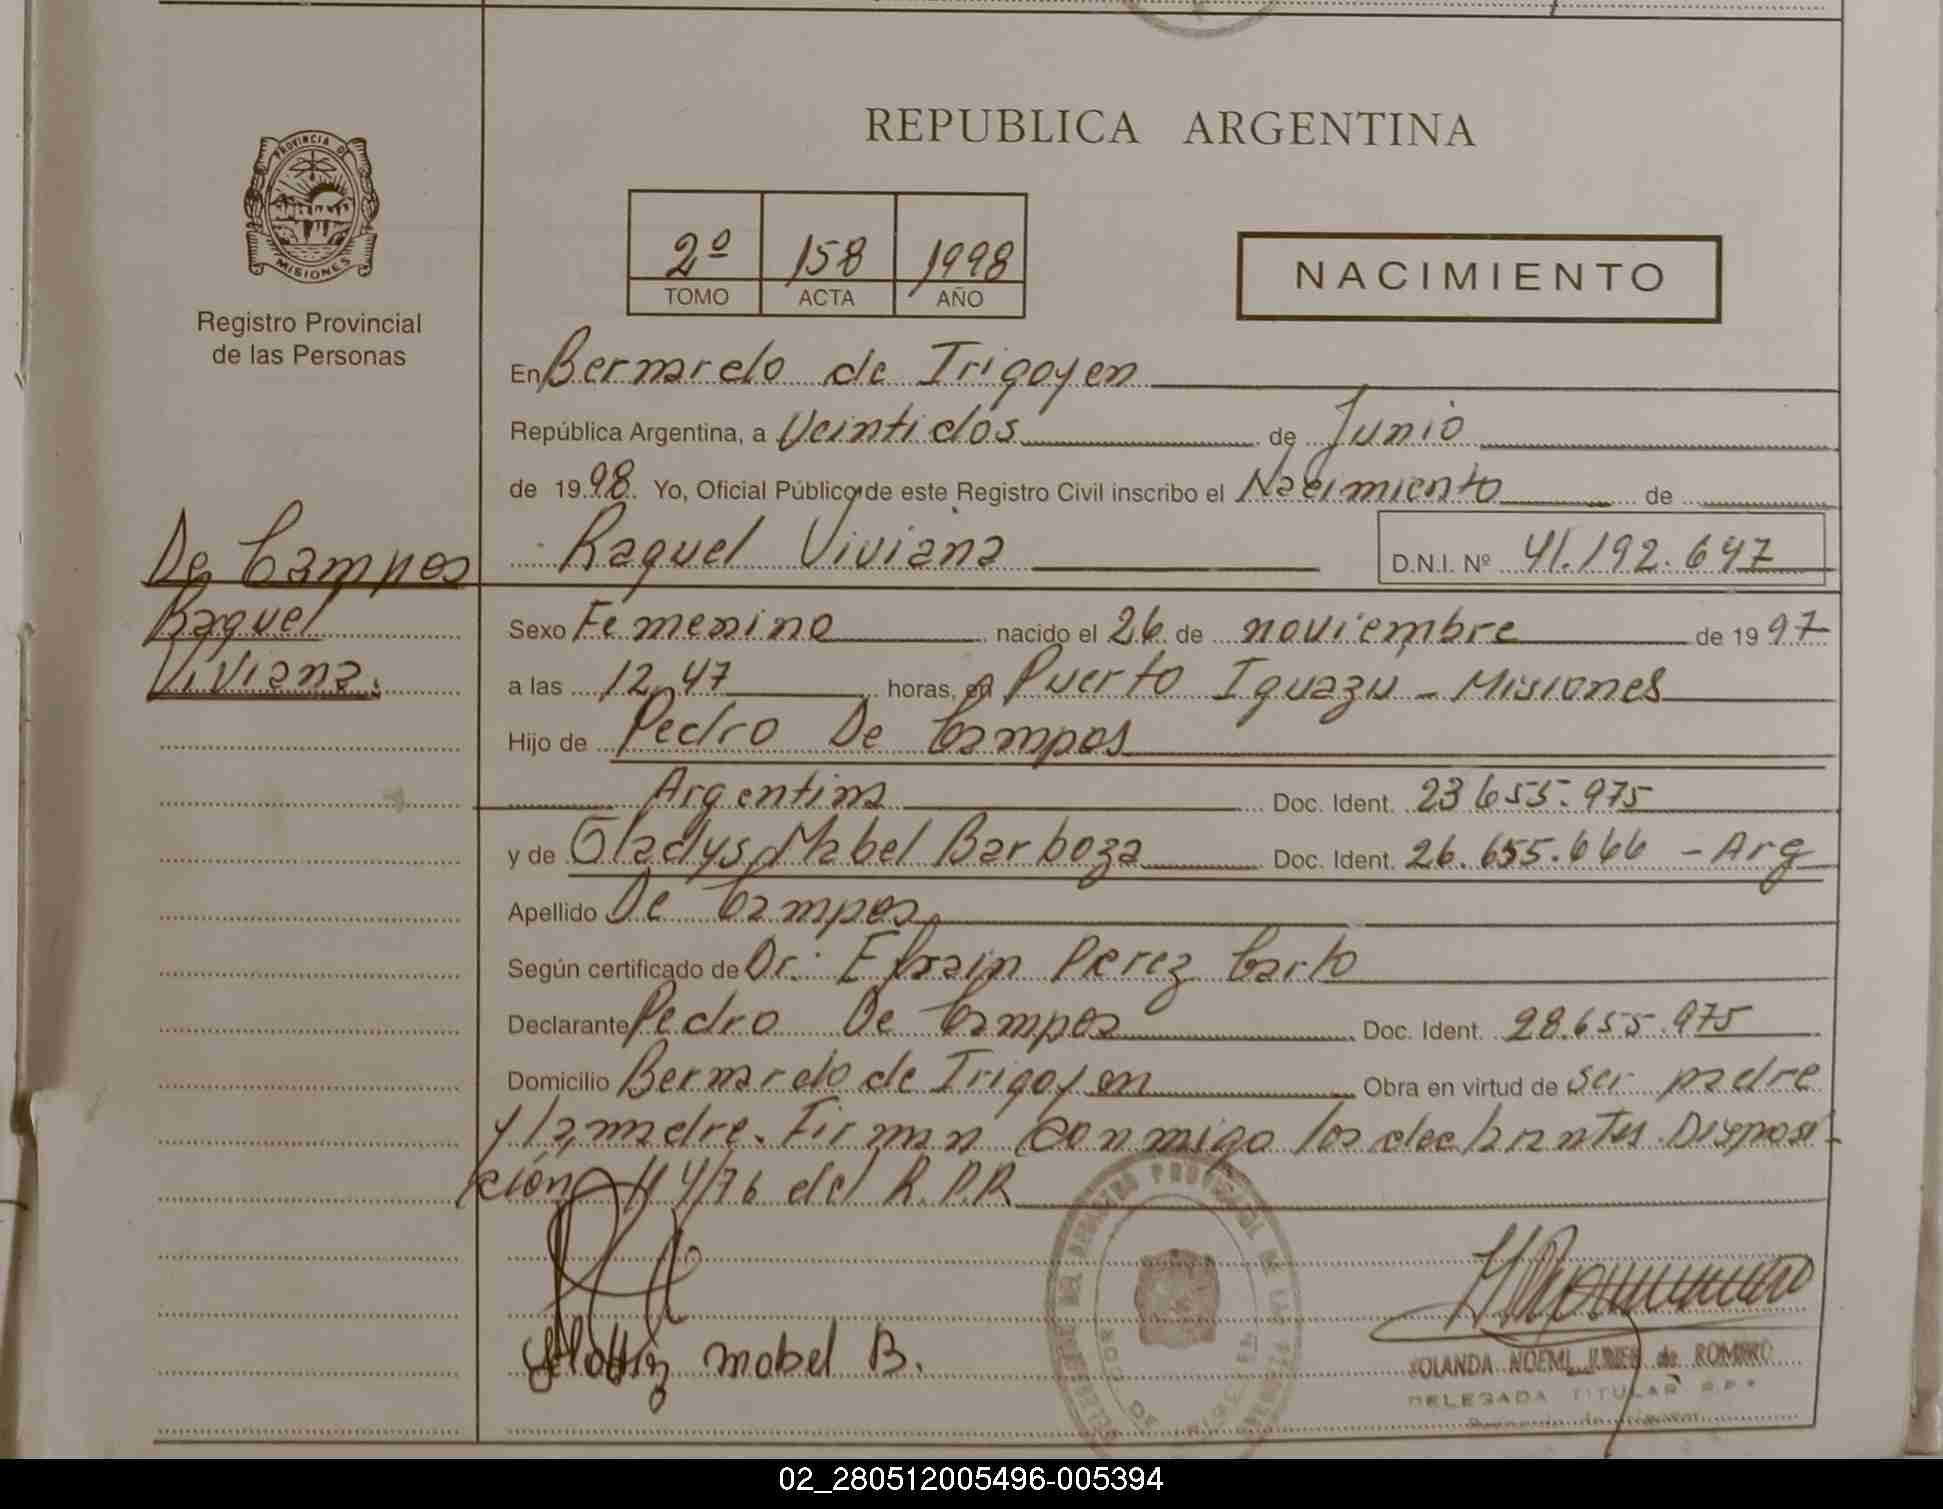 REPUBLICA ARGENTINA
PROVINCIA DE
MISIONES
Registro Provincial
de las Personas
2º 158 1998
TOMO ACTA AÑO
NACIMIENTO
En Bernardo de Irigoyen
República Argentina, a Veintidos de Junio
de 1998. Yo, Oficial Público de este Registro Civil inscribo el Nacimiento de
De Campos
Raquel
Viviana.
Raquel Viviana D.N.I. Nº 41.192.647
Sexo Femenino nacido el 26 de noviembre de 1997
a las 12,47 horas, en Puerto Iguazu - Misiones
Hijo de Pedro De Campos
Argentina Doc. Ident. 23.655.975
y de Gladys Mabel Barboza Doc. Ident. 26.655.666 - Arg
Apellido De Campos
Según certificado de Dr. Efrain Perez
Declarante Pedro De Campos Doc. Ident. 28.655.975
Domicilio Bernardo de Irigoyen Obra en virtud de ser padre
y la madre. Firman conmigo los declarantes. Disposi-
ción 44/76 del R.P.P.
mabel B.
YOLANDA NOEMI de ROMERO
DELEGADA TITULAR R.P.P.
02_280512005496-005394